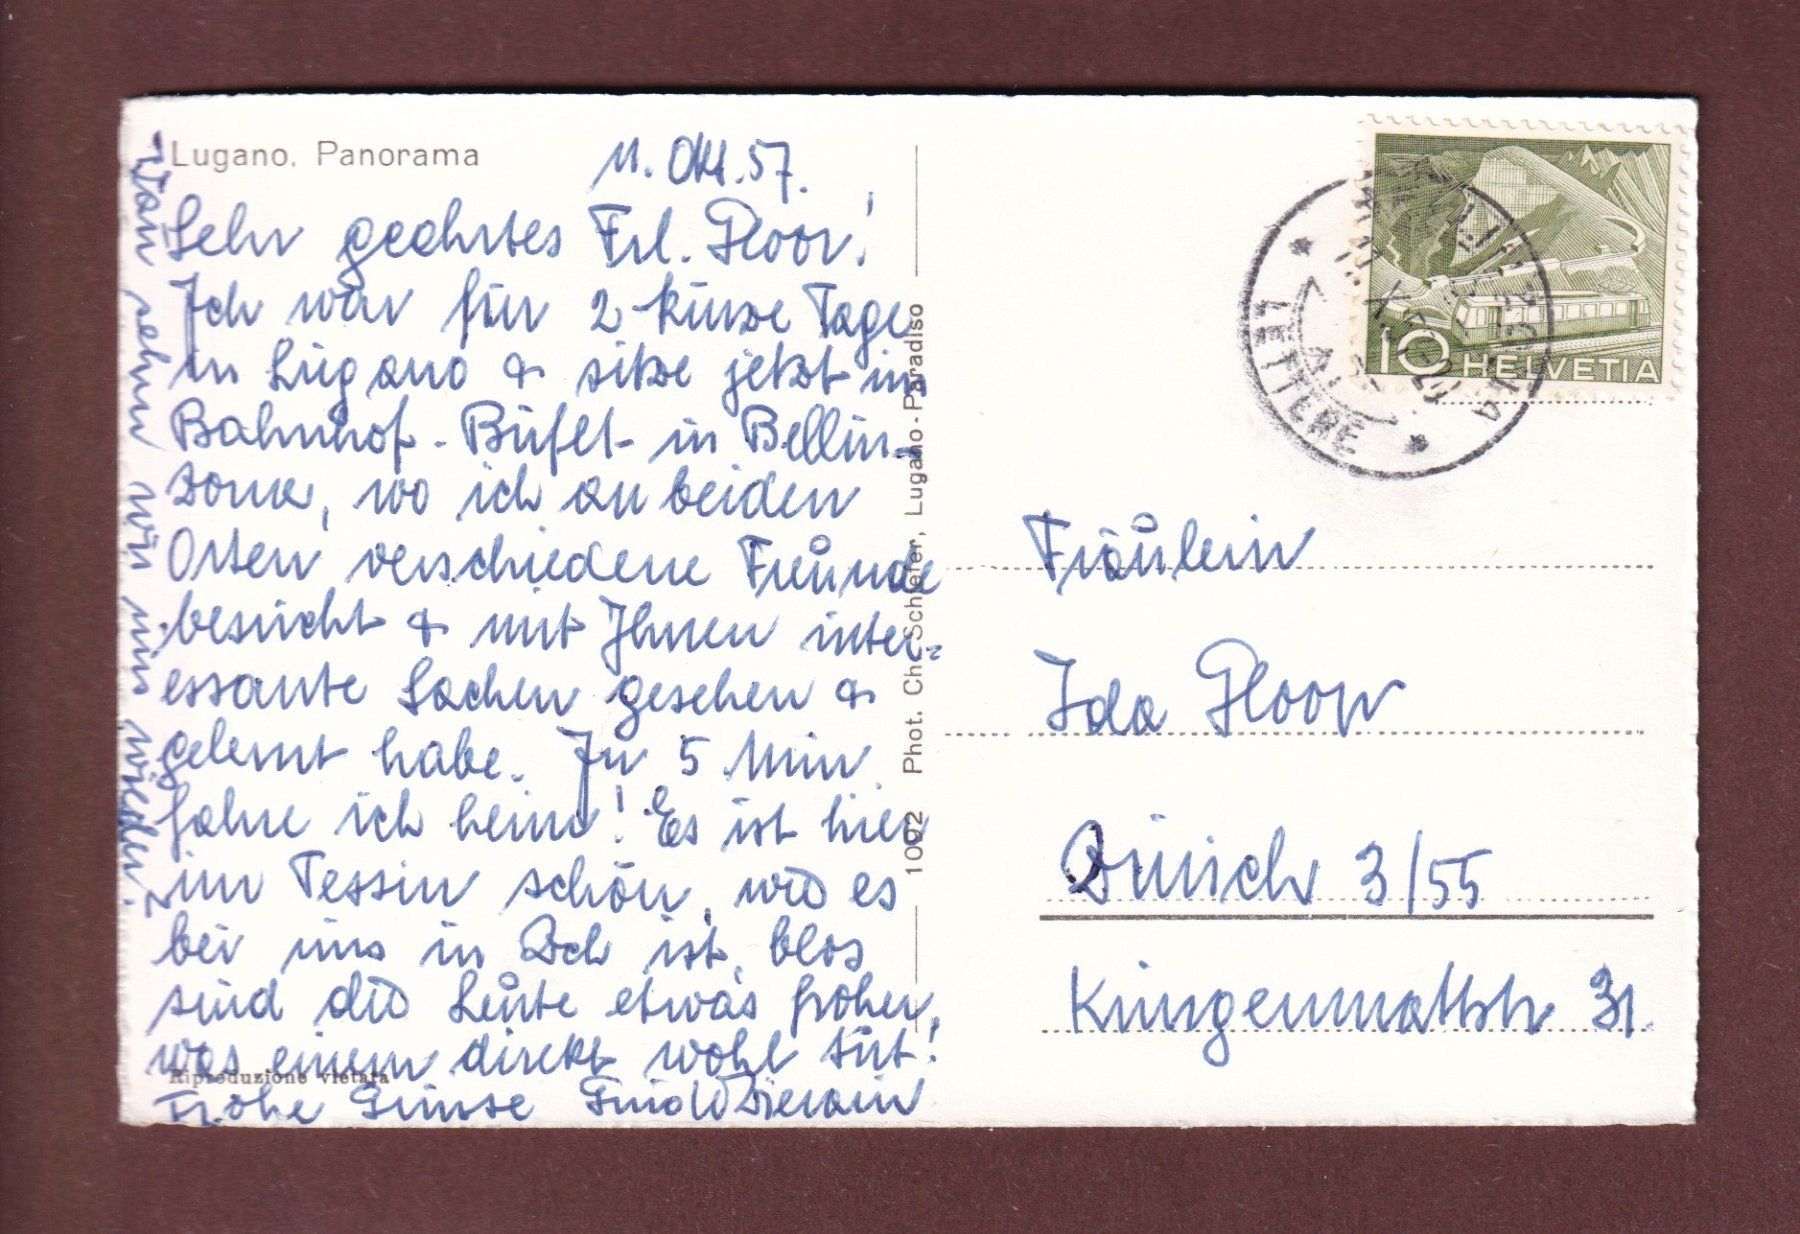 Lugano. Panorama
11. Okt. 57.
Sehr geehrtes Frl. Floor!
Ich war für 2 kurze Tage
in Lugano & sitze jetzt im
Bahnhof-Büfet in Bellin-
zona, wo ich an beiden
Orten verschiedene Freunde
besucht & mit Ihnen inter-
essante Sachen gesehen &
gelernt habe. In 5 Min.
fahre ich heim! Es ist hier
im Tessin schön, wie es
bei uns in Zch ist, blos
sind die Leute etwas froher,
was einem direkt wohl tut!
Frohe Grüsse
Wann sehn wir uns wieder?
Riproduzione vietata
1092 Phot. Ch. Schiefer, Lugano-Paradiso
LETTERE
10 HELVETIA
Fräulein
Ida Floor
Zürich 3/55